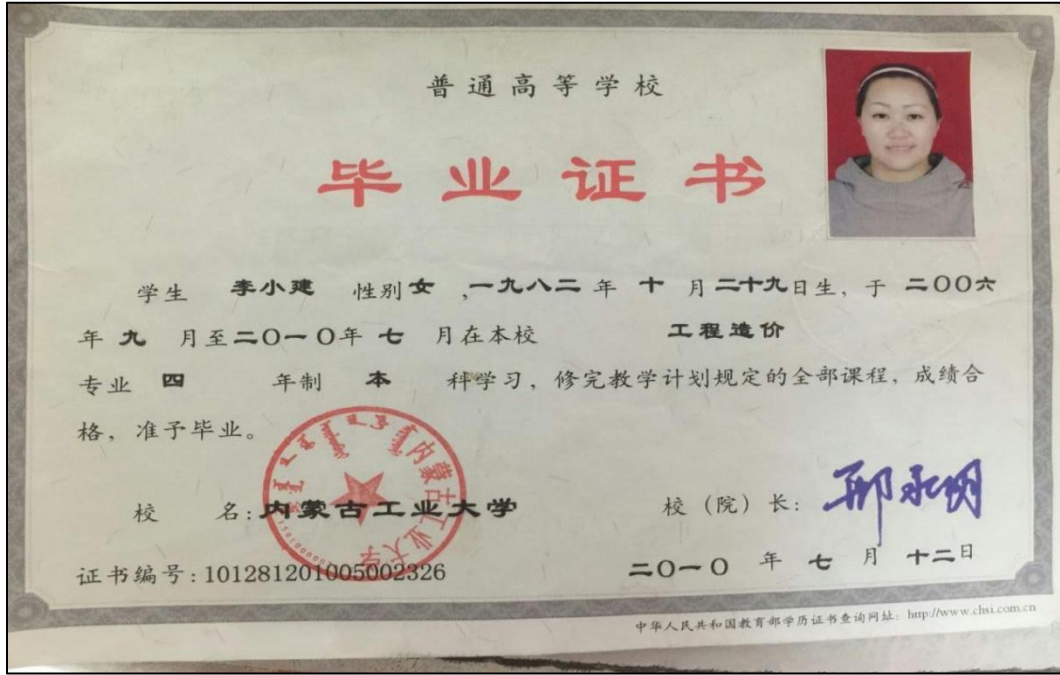 普通高等学校
毕业证书
学生 李小建 性别 女 ,一九八二 年 十 月 二十九日生, 于 二〇〇六
年 九 月至二〇一〇年 七 月在本校 工程造价
专业 四 年制 本 科学习, 修完教学计划规定的全部课程, 成绩合
格, 准予毕业。
内蒙古工业大学
校 名: 内蒙古工业大学 校(院)长: 邢永明
证书编号: 101281201005002326 二〇一〇 年 七 月 十二日
中华人民共和国教育部学历证书查询网址: http://www.chsi.com.cn